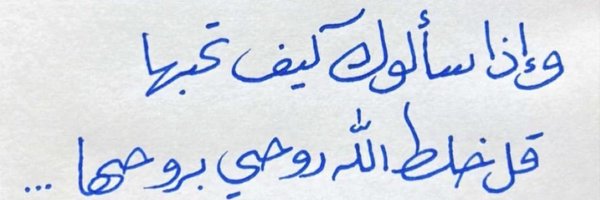 وإذا سألوك كيف تحبها
قل خلط الله روحي بروحها ...